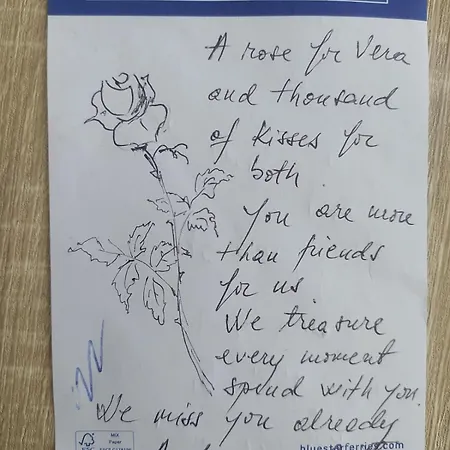 A rose for Vera
and thousand
of kisses for
both.
You are more
than friends
for us
We treasure
every moment
spend with you.
We miss you already
FSC
MIX
Paper
bluestarferries.com